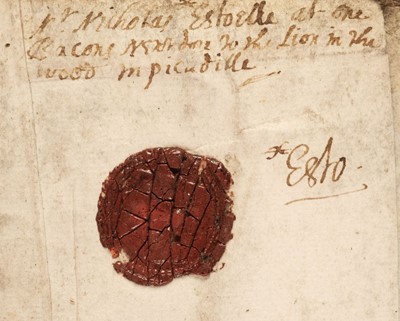 Mr Nicholas Estoelle at one
Bacons Next dore to the Lion in the
wood in picadille
Esto